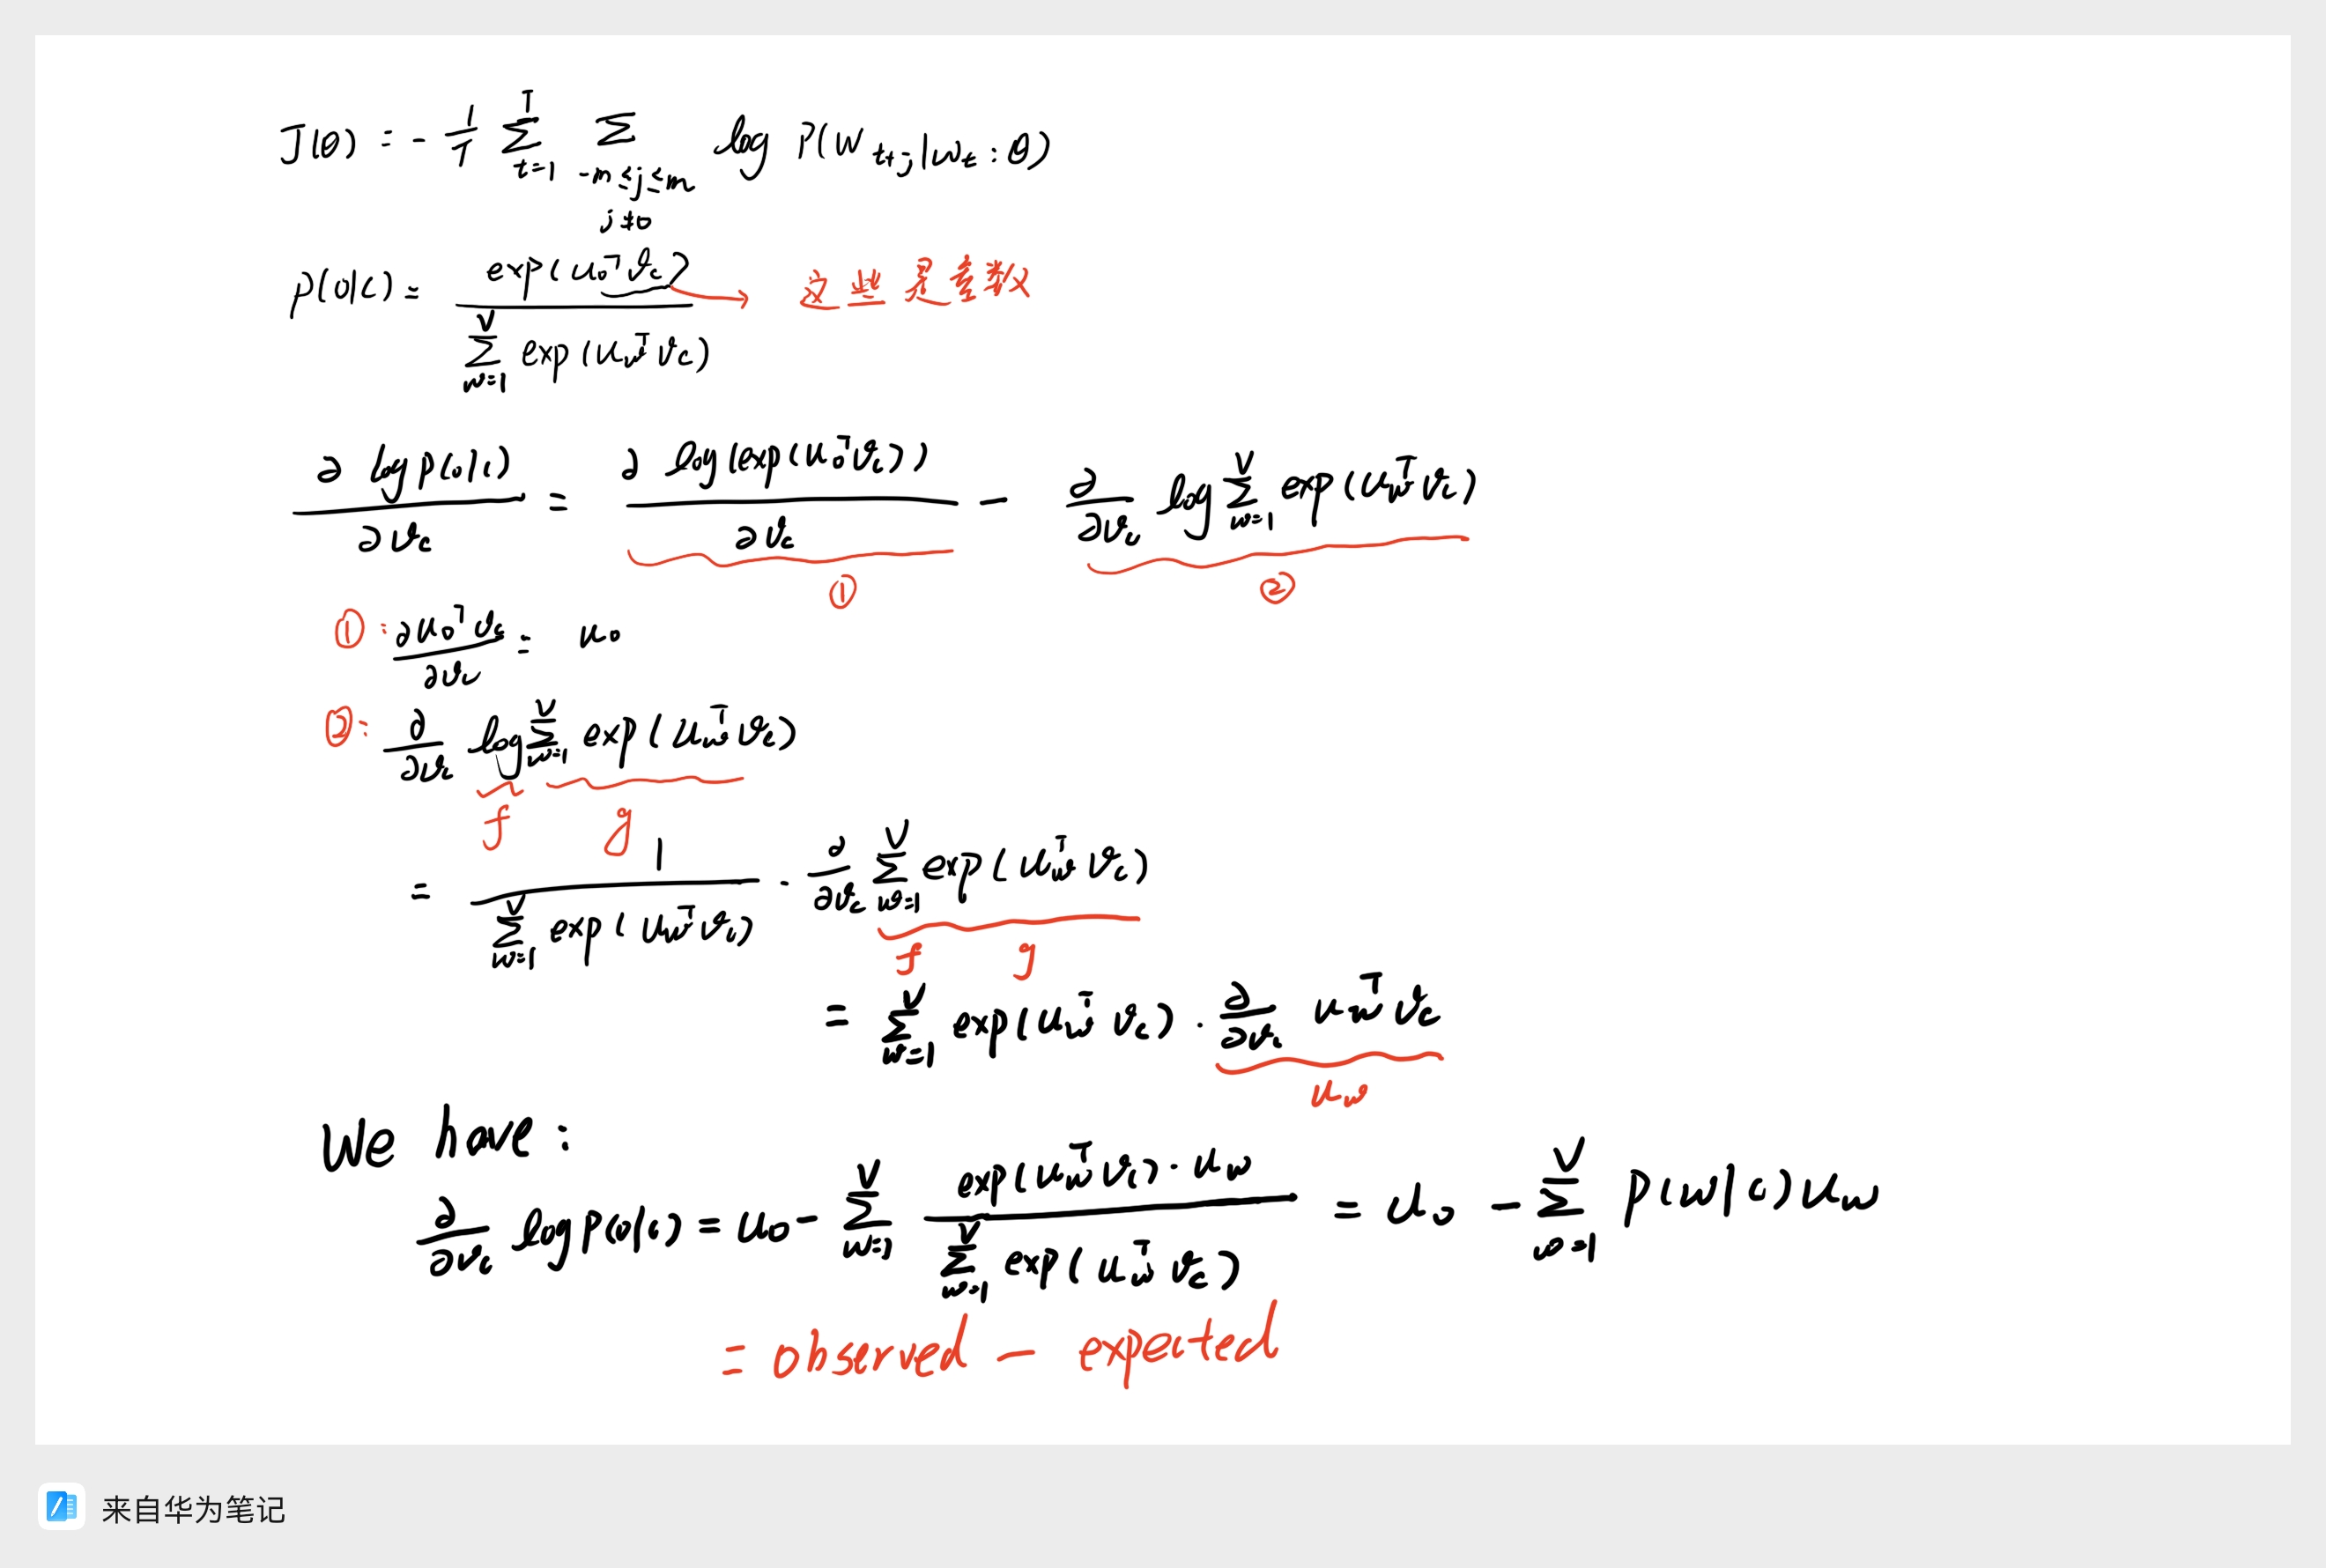 J(θ) = - 1/T Σ_{t=1}^{T} Σ_{-m≤j≤m, j≠0} log P(w_{t+j}|w_t : θ)
P(o|c) = exp(u_o^T v_c) / Σ_{w=1}^{V} exp(u_w^T v_c) → 这些是参数
∂ log p(o|c) / ∂v_c = ∂ log(exp(u_o^T v_c)) / ∂v_c - ∂/∂v_c log Σ_{w=1}^{V} exp(u_w^T v_c)
① ②
①: ∂u_o^T v_c / ∂v_c = u_o
②: ∂/∂v_c log Σ_{w=1}^{V} exp(u_w^T v_c)
f g
= 1 / Σ_{w=1}^{V} exp(u_w^T v_c) · ∂/∂v_c Σ_{w=1}^{V} exp(u_w^T v_c)
f g
= Σ_{w=1}^{V} exp(u_w^T v_c) · ∂/∂v_c u_w^T v_c
u_w
We have:
∂/∂v_c log p(o|c) = u_o - Σ_{w=1}^{V} exp(u_w^T v_c) · u_w / Σ_{w=1}^{V} exp(u_w^T v_c) = u_o - Σ_{w=1}^{V} P(w|c) u_w
= observed - expected
来自华为笔记